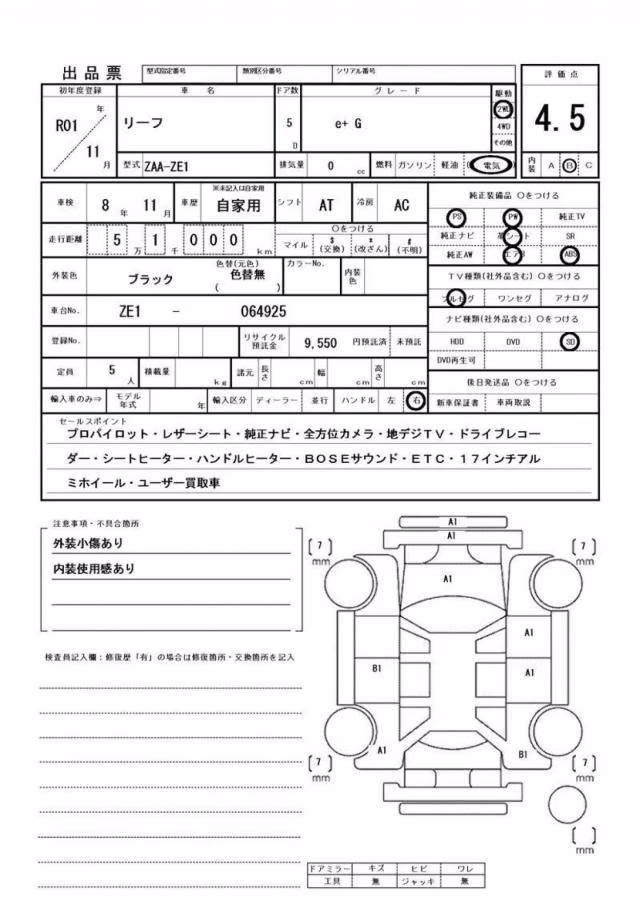 出品票 型式指定番号 類別区分番号 シリアル番号
評価点
初年度登録 車名 ドア数 グレード 駆動
R01 年 11 月 リーフ 5 D e+ G 2WD 4WD その他 4.5
型式 ZAA-ZE1 排気量 0 cc 燃料 ガソリン 軽油 (電気) 内装 A B C
車検 8 年 11 月 車歴 ※未記入は自家用 自家用 シフト AT 冷房 AC
純正装備品 ○をつける
PS PW 純正TV
走行距離 5 万 1 千 0 0 0 km ○をつける マイル $ (交換) * (改ざん) # (不明)
純正ナビ 革シート SR
純正AW エアB ABS
外装色 ブラック 色替(元色) 色替無 ( ) カラーNo. 内装色
TV種類(社外品含む) ○をつける
フルセグ ワンセグ アナログ
車台No. ZE1 - 064925
ナビ種類(社外品含む) ○をつける
登録No. リサイクル預託金 9,550 円預託済 未預託
HDD DVD SD
DVD再生可
定員 5 人 積載量 kg 諸元 長さ cm 幅 cm 高さ cm
後日発送品 ○をつける
輸入車のみ⇒ モデル年式 年 輸入区分 ディーラー 並行 ハンドル 左 右 新車保証書 車両取説
セールスポイント
プロパイロット・レザーシート・純正ナビ・全方位カメラ・地デジTV・ドライブレコー
ダー・シートヒーター・ハンドルヒーター・BOSEサウンド・ETC・17インチアル
ミホイール・ユーザー買取車
注意事項・不具合箇所
外装小傷あり
内装使用感あり
検査員記入欄:修復歴「有」の場合は修復箇所・交換箇所を記入
A1
A1
7 mm
7 mm
A1
A1
B1
A1
A1
B1
7 mm
7 mm
mm
ドアミラー キズ ヒビ ワレ
工具 無 ジャッキ 無